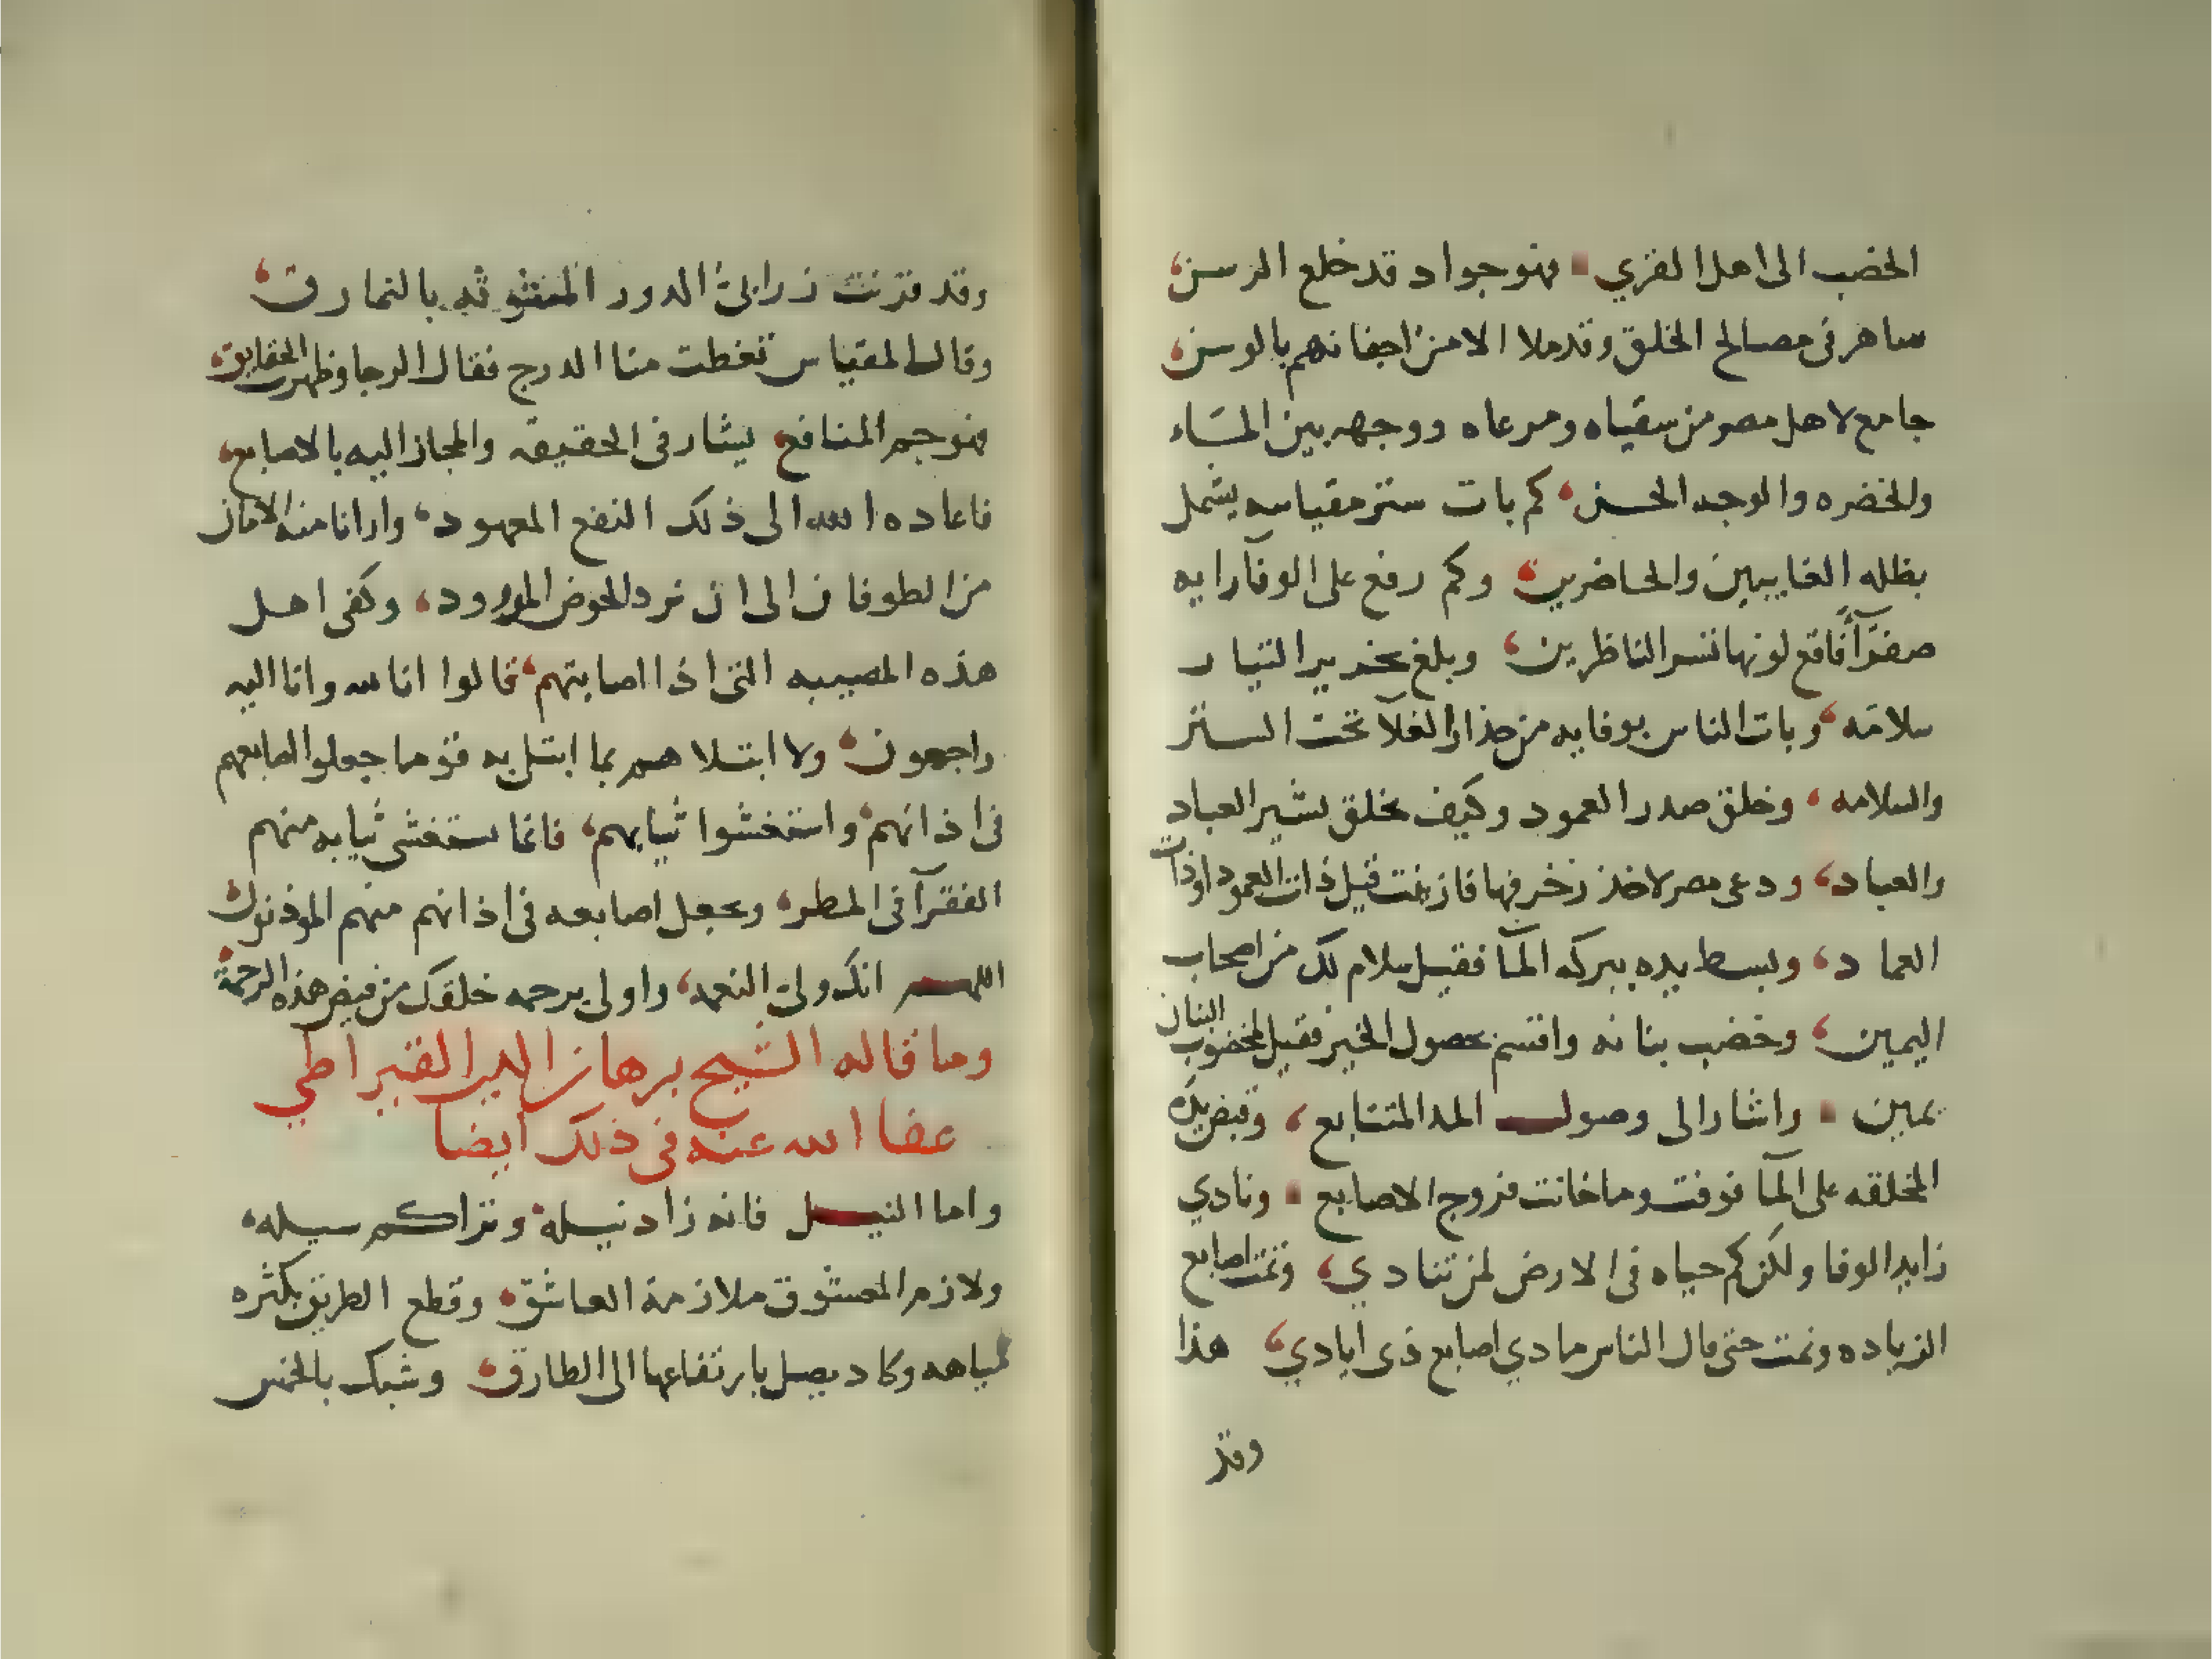 الخصب الى اهل القري فهو جواد قد خلع الرسن،
ساهر في مصالح الخلق وقد ملا الامن اجفانهم بالوسن،
جامع لاهل مصر من سقياه ومرعاه ووجهه بين المسَاء
والخضره والوجه الحسن، كم بات ستر مقياسه يشمل
بظله الغايبين والحاضرين، وكم رفع على الوفا رايه
صفرآً فاقع لونها تسر الناظرين، وبلغ بخدير التيار
سلامه، وبات الناس بوفايه من حذار الغلا تحت الستر
والسلامه، وخلق صدر العمود وكيف يخلق بشير العباد
والعباد، ودعى مصر لاخذ زخرفها فازينت فقيل ذات العمود او ذات
العماد، وبسط يده ببركه المآ فقيل سلام لك من اصحاب
اليمين، وخضب بنانه واقسم بحصول الخير فقيل لمخضوب البنان
يمين واشار الى وصول المد المتتابع، وقبض يده
المخلقه على المآ فوفت وما خانت فروج الاصابع ونادي
زايد الوفا ولكن كم حياه في الارض لمن تنادي، ونمت اصابع
الزياده ونمت حتى قال الناس ما دي اصابع ذي ايادي، هذا
وقد
وقد قرنت زرابيّ الدور المبثوثه بالنمارق،
وقال المقياس تغطت منا الدرج فقال الرجا وظهرت الحقايق،
فهو جم المنافع، يشار في الحقيقه والمجاز اليه بالاصابع،
فاعاده الله الى ذلك النفع المعهود، وارانا منه الامان
من الطوفان الى ان نرد الحوض المورود، وكفى اهل
هذه المصيبه التي اذا اصابتهم، قالوا انا لله وانا اليه
راجعون، ولا ابتلاهم بما ابتلى به قوما جعلوا اصابعهم
في اذانهم، واستغشوا ثيابهم، فانما يستغشى ثيابه منهم
الفقرآ في المطر، ويجعل اصابعه في اذانهم منهم الموذنون
اللهم انك ولى النعمه، واولى برحمه خلقك من فيض هذه الرحمة،
وما قاله الشيخ برهان الدين القيراطي
عفا الله عنه في ذلك ايضا
واما النيل فانه زاد نيله، وتراكم سيله،
ولازم المعشوق ملازمة العاشق، وقطع الطريق بكثره
مياهه وكاد يصل بارتفاعها الى الطارق، وشبك بالخمس